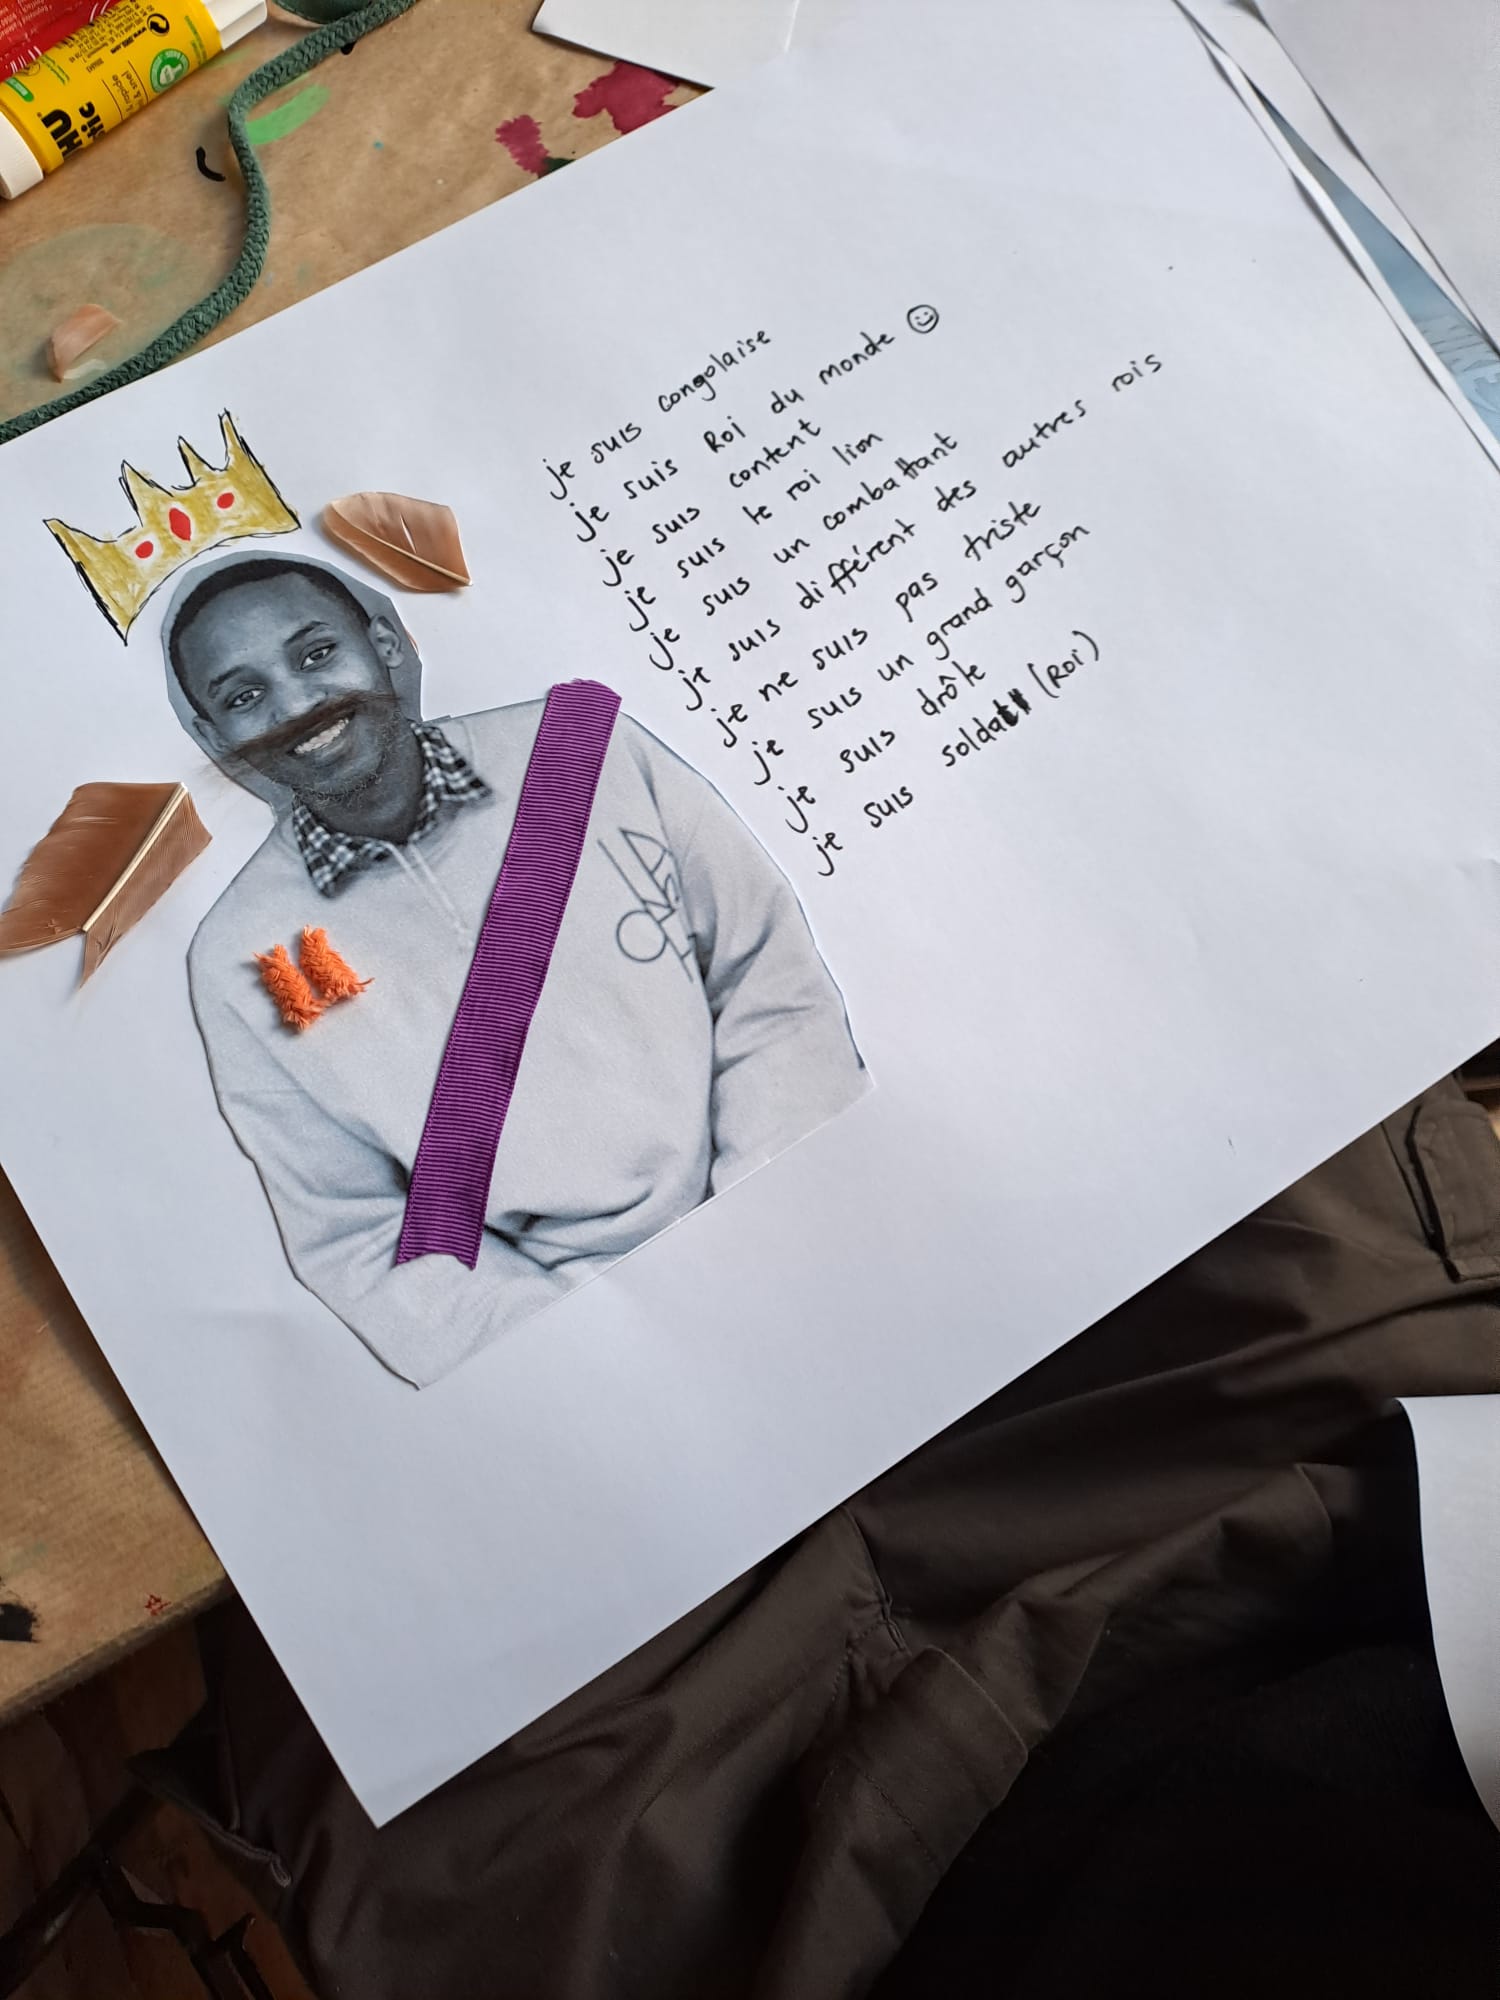 je suis congolaise
je suis Roi du monde ☺
je suis content
je suis le roi lion
je suis un combattant
je suis différent des autres rois
je ne suis pas triste
je suis un grand garçon
je suis drôle
je suis soldat (Roi)